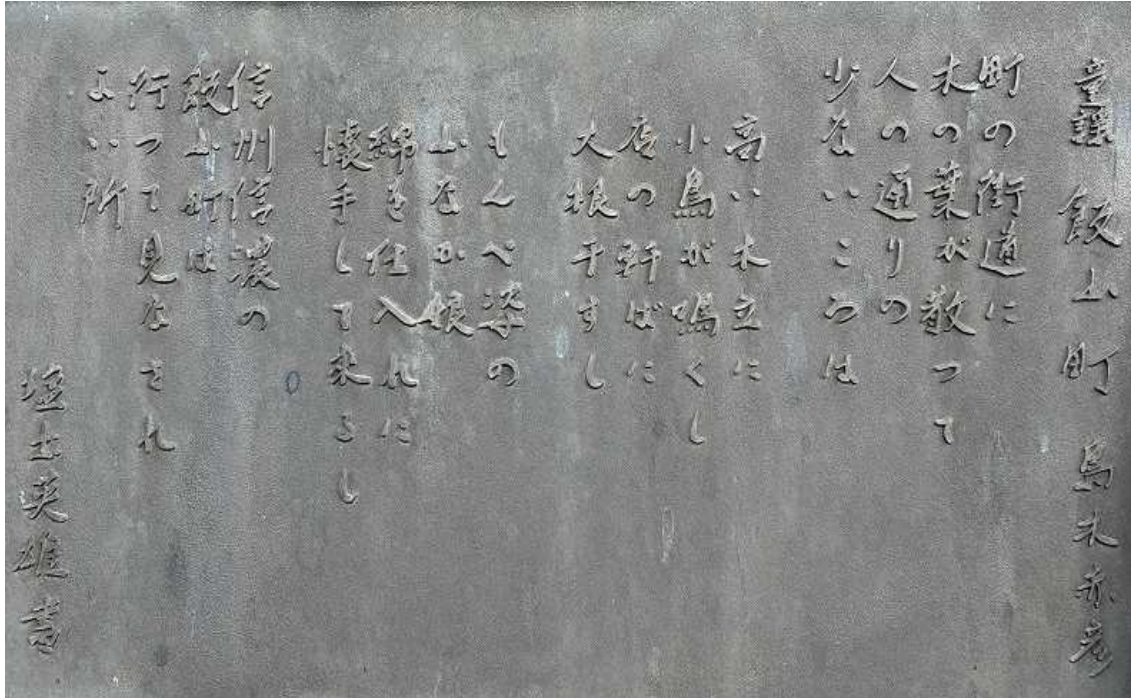 童謡 飯山町 島木赤彦
町の街道に
木の葉が散って
人の通りの
少ないころは
高い木立に
小鳥が鳴くし
店の軒ばに
大根干すし
もんぺ姿の
山なか娘
綿を仕入れに
懐手して来るし
信州信濃の
飯山町は
行って見なされ
よい所
塩士英雄書